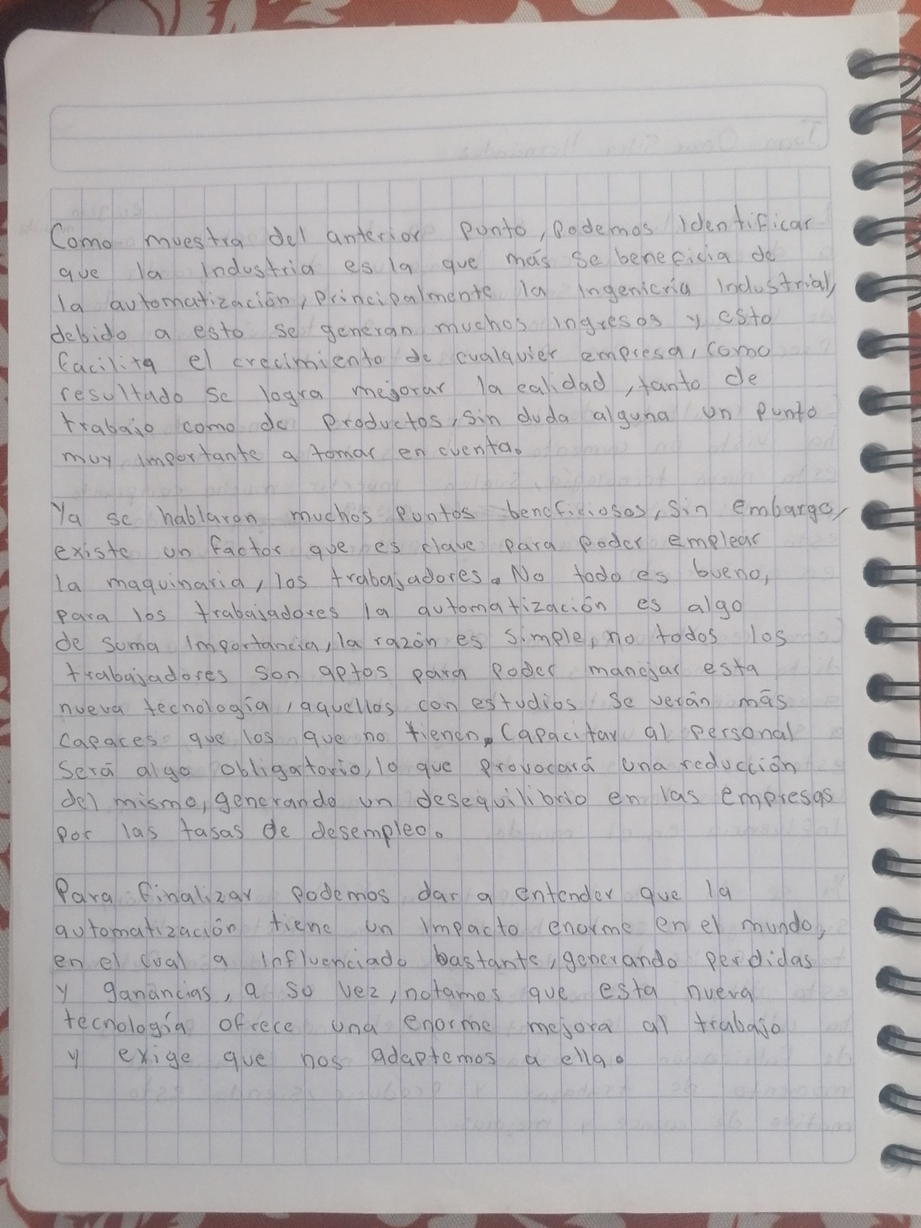 Como muestra del anterior punto, podemos identificar
que la industria es la que más se beneficia de
la automatización, principalmente la Ingeniería Industrial,
debido a esto se generan muchos ingresos y esto
facilita el crecimiento de cualquier empresa, como
resultado se logra mejorar la calidad, tanto de
trabajo como de productos, sin duda alguna un punto
muy importante a tomar en cuenta.
Ya se hablaron muchos puntos beneficiosos, sin embargo,
existe un factor que es clave para poder emplear
la maquinaria, los trabajadores. No todo es bueno,
para los trabajadores la automatización es algo
de suma importancia, la razón es simple, no todos los
trabajadores son aptos para poder manejar esta
nueva tecnología, aquellos con estudios se verán más
capaces que los que no tienen. Capacitar al personal
será algo obligatorio, lo que provocará una reducción
del mismo, generando un desequilibrio en las empresas
por las tasas de desempleo.
Para finalizar podemos dar a entender que la
automatización tiene un impacto enorme en el mundo,
en el cual a influenciado bastante, generando perdidas
y ganancias, a su vez, notamos que esta nueva
tecnología ofrece una enorme mejora al trabajo
y exige que nos adaptemos a ella.